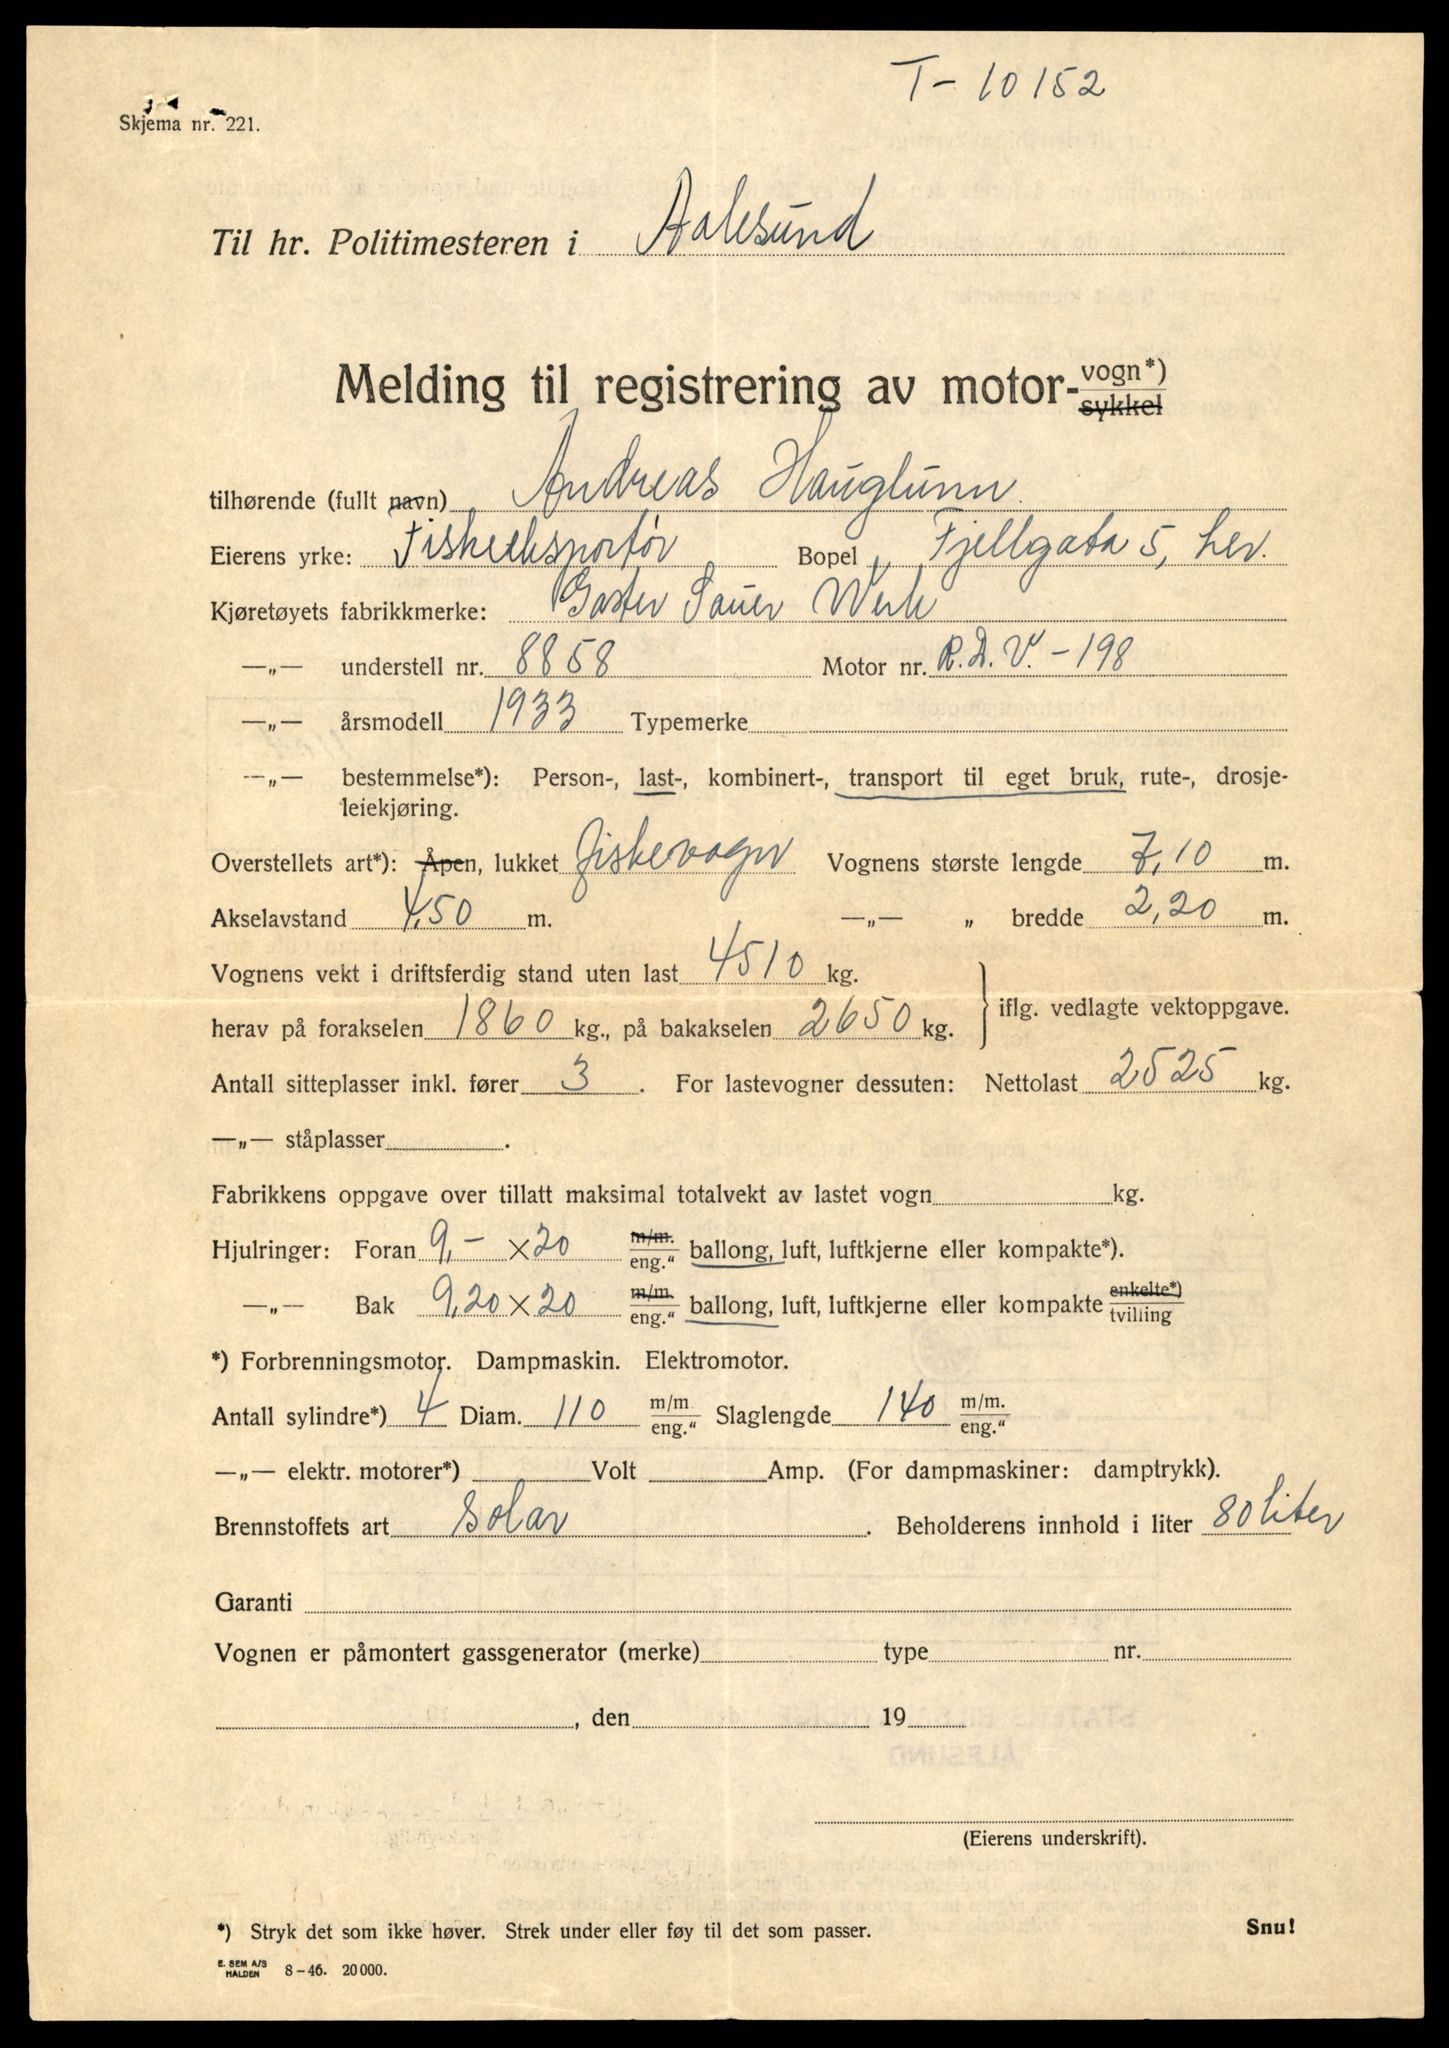 T-10152
Skjema nr. 221.
Til hr. Politimesteren i Aalesund
Melding til registrering av motor-vogn*)
sykkel
tilhørende (fullt navn) Andreas Hauglunn.
Eierens yrke: Fiskeeksportør Bopel Fjellgata 5, her.
Kjøretøyets fabrikkmerke: Goster Sauer Werk
—„— understell nr. 8858 Motor nr. R.D.V. - 198
—„— årsmodell 1933 Typemerke
—„— bestemmelse*): Person-, last-, kombinert-, transport til eget bruk, rute-, drosje-
leiekjøring.
Overstellets art*): Åpen, lukket fiskevogn Vognens største lengde 7,10 m.
Akselavstand 4,50 m. —„— „ bredde 2,20 m.
Vognens vekt i driftsferdig stand uten last 4510 kg.
herav på forakselen 1860 kg., på bakakselen 2650 kg. iflg. vedlagte vektoppgave.
Antall sitteplasser inkl. fører 3. For lastevogner dessuten: Nettolast 2525 kg.
—„— ståplasser.
Fabrikkens oppgave over tillatt maksimal totalvekt av lastet vogn kg.
Hjulringer: Foran 9,- × 20 m/m. eng.“ ballong, luft, luftkjerne eller kompakte*).
—„— Bak 9,20 × 20 m/m. eng.“ ballong, luft, luftkjerne eller kompakte enkelte*) tvilling
*) Forbrenningsmotor. Dampmaskin. Elektromotor.
Antall sylindre*) 4 Diam. 110 m/m eng.“ Slaglengde 140 m/m. eng.“
—„— elektr. motorer*) Volt Amp. (For dampmaskiner: damptrykk).
Brennstoffets art solar. Beholderens innhold i liter 80 liter
Garanti
Vognen er påmontert gassgenerator (merke) type nr.
, den 19
(Eierens underskrift).
*) Stryk det som ikke høver. Strek under eller føy til det som passer. Snu!
E. SEM A/S HALDEN 8-46. 20 000.